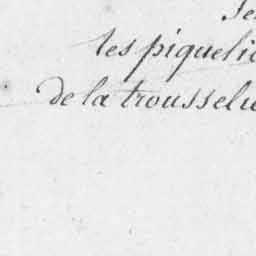 Je
les piqueli
de la trousselu